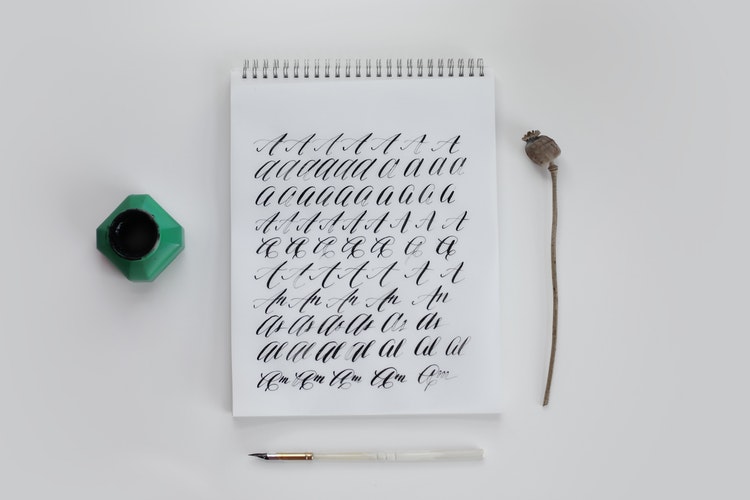 A A A A A A A A
a a a a a a a a a a
a a a a a a a a a a
A A A A A A A A A
A A A A A A A A
A A A A A A A
An An An An An
As As As As As As
Al Al Al Al Al Al Al
Am Am Am Am Am